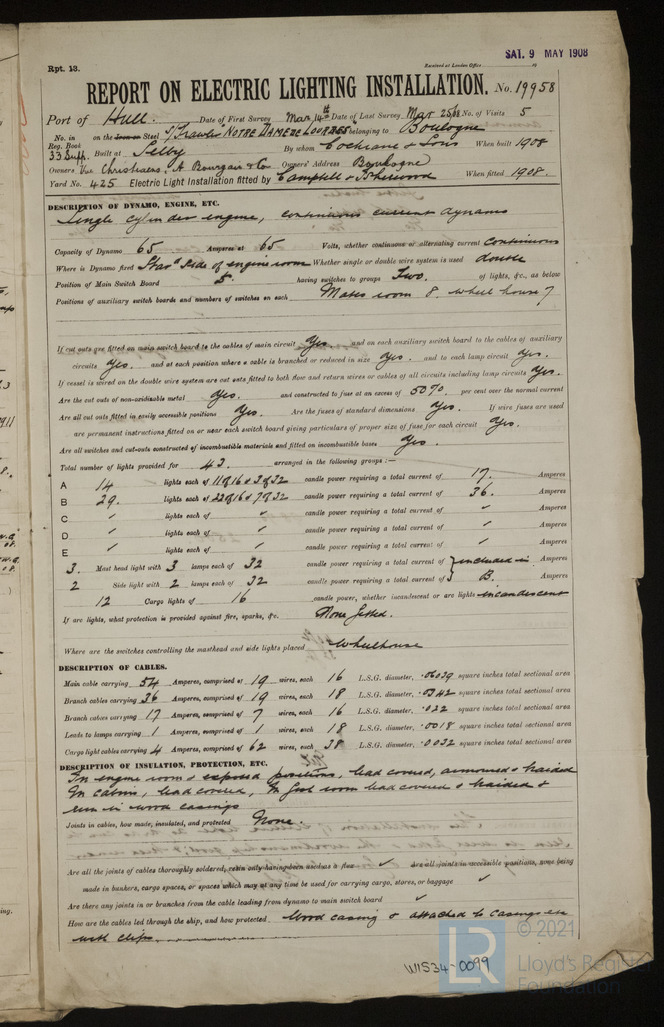 SAT. 9 MAY 1908
Rpt. 13.
Received at London Office
REPORT ON ELECTRIC LIGHTING INSTALLATION. No. 19958
Port of Hull. Date of First Survey Mar. 14th Date of Last Survey Mar 25/08 No. of Visits 5
No. in Reg. Book on the Iron or Steel S/Trawler NOTRE DAME DE LOURDES belonging to Boulogne
33 Supp. Built at Selby By whom Cochrane & Sons When built 1908
Owners Vve Christiaens, A Bourgain & Co Owners' Address Boulogne
Yard No. 425 Electric Light Installation fitted by Campbell & Isherwood When fitted 1908.
DESCRIPTION OF DYNAMO, ENGINE, ETC.
Single cylinder engine, continuous current dynamo
Capacity of Dynamo 65 Amperes at 65 Volts, whether continuous or alternating current continuous
Where is Dynamo fixed Starbd side of engine room Whether single or double wire system is used double
Position of Main Switch Board having switches to groups Two. of lights, &c., as below
Positions of auxiliary switch boards and numbers of switches on each Mates room 8. wheel house 7
If cut outs are fitted on main switch board to the cables of main circuit Yes and on each auxiliary switch board to the cables of auxiliary
circuits Yes. and at each position where a cable is branched or reduced in size Yes. and to each lamp circuit Yes.
If vessel is wired on the double wire system are cut outs fitted to both flow and return wires or cables of all circuits including lamp circuits Yes.
Are the cut outs of non-oxidizable metal Yes. and constructed to fuse at an excess of 50%. per cent over the normal current
Are all cut outs fitted in easily accessible positions Yes. Are the fuses of standard dimensions Yes. If wire fuses are used
are permanent instructions fitted on or near each switch board giving particulars of proper size of fuse for each circuit Yes.
Are all switches and cut-outs constructed of incombustible materials and fitted on incombustible bases Yes.
Total number of lights provided for 43. arranged in the following groups :—
A 14 lights each of 11 of 16 & 3 of 32 candle power requiring a total current of 17. Amperes
B 29. lights each of 22 of 16 & 7 of 32 candle power requiring a total current of 36. Amperes
C " lights each of " candle power requiring a total current of " Amperes
D " lights each of " candle power requiring a total current of " Amperes
E " lights each of " candle power requiring a total current of " Amperes
3. Mast head light with 3 lamps each of 32 candle power requiring a total current of } included in Amperes
2 Side light with 2 lamps each of 32 candle power requiring a total current of } B. Amperes
12 Cargo lights of 16 candle power, whether incandescent or arc lights incandescent
If arc lights, what protection is provided against fire, sparks, &c. None fitted.
Where are the switches controlling the masthead and side lights placed Wheelhouse
DESCRIPTION OF CABLES.
Main cable carrying 54 Amperes, comprised of 19 wires, each 16 L.S.G. diameter, .06029 square inches total sectional area
Branch cables carrying 36 Amperes, comprised of 19 wires, each 18 L.S.G. diameter, .0342 square inches total sectional area
Branch cables carrying 17 Amperes, comprised of 7 wires, each 16 L.S.G. diameter, .022 square inches total sectional area
Leads to lamps carrying 1 Amperes, comprised of 1 wires, each 18 L.S.G. diameter, .0018 square inches total sectional area
Cargo light cables carrying 4 Amperes, comprised of 62 wires, each 38 L.S.G. diameter, .0032 square inches total sectional area
DESCRIPTION OF INSULATION, PROTECTION, ETC.
In engine room & exposed positions, lead covered, armoured & braided
In cabins, lead covered, In fish room lead covered & braided &
run in wood casings
Joints in cables, how made, insulated, and protected None.
Are all the joints of cables thoroughly soldered, resin only having been used as a flux Are all joints in accessible positions, none being
made in bunkers, cargo spaces, or spaces which may at any time be used for carrying cargo, stores, or baggage
Are there any joints in or branches from the cable leading from dynamo to main switch board
How are the cables led through the ship, and how protected Wood casing & attached to casings etc
with clips.
W1534-0099
LR
© 2021
Lloyd's Register
Foundation